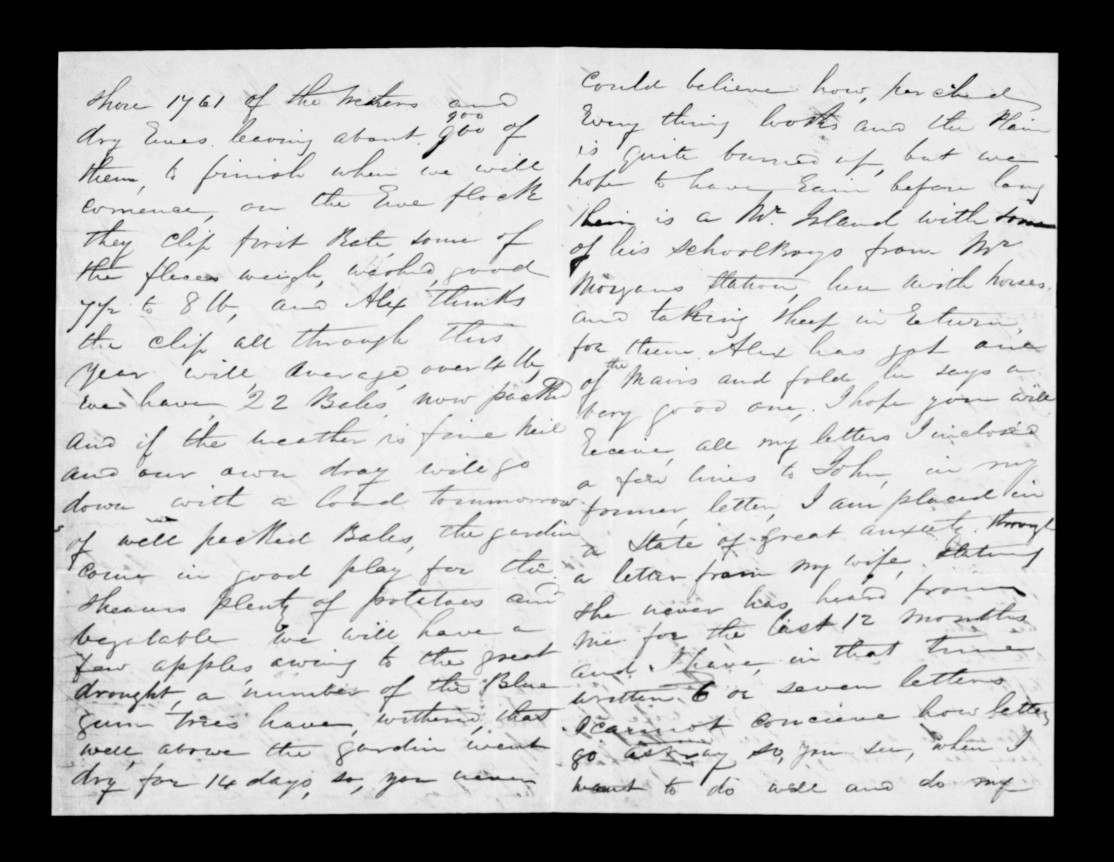 shore 1761 of the Wethers and
dry Ewes leaving about 900 of
900
them, to finish when we will
comence, on the Ewe flock
they clip first Rate, some of
the fleeces weigh, washed, good
7½ to 8 lb, and Alex thinks
the clip all through this
year will, average, over 4 lb,
we have, 22 Bales, now packed
and if the weather is fine Neil
and our own dray will go
down with a load tommorrow
of well packed Bales, the gardin
comes in good play for the
shearers plenty of potatoes and
vegetable we will have a
few apples owing to the great
drought, a number of the Blue
gum trees have, withered, that
well, above the gardin went
dry, for 14 days, so, you never
could believe how, parched
Every thing looks and the Plain
is quite burned up, but we
hope to have Rain before long
their is a Mr. Island with some
of his schoolboys from Mr
Morgans station, here with horses.
and taking sheep in Return,
for them. Alex has got one
of the Mairs and fold he says a
very good one, I hope you will
Receive, all my letters I inclosed
a few lines to John, in my
former, letter, I am placed in
a state of great anxiety. through
a letter from my wife, stating
she never has, heard from
me for the last 12 months
and I have, in that time
written 6 or seven letters
I cannot concieve how letters
go astray so, you see, when I
want to do well and do my